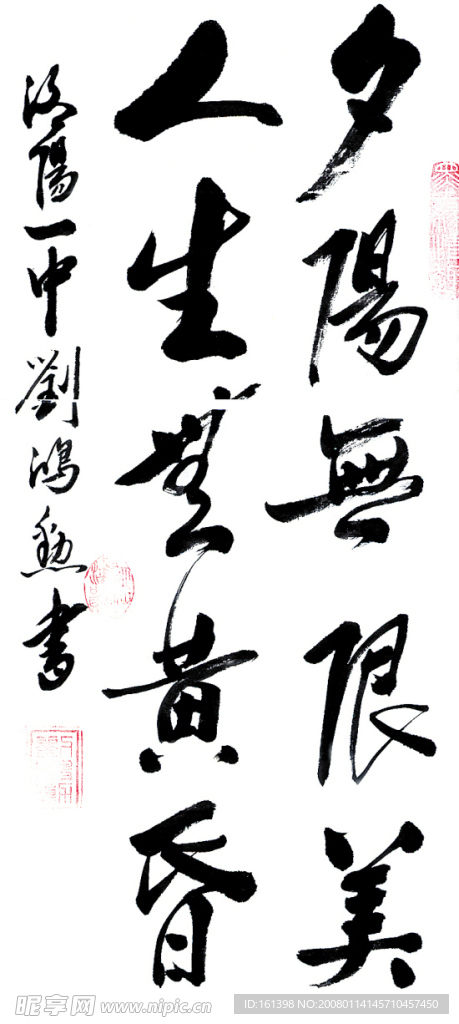 夕陽無限美
人生無黃昏
洛陽一中劉鴻勳書
昵享网 www.nipic.cn
ID:161398 NO:20080114145710457450